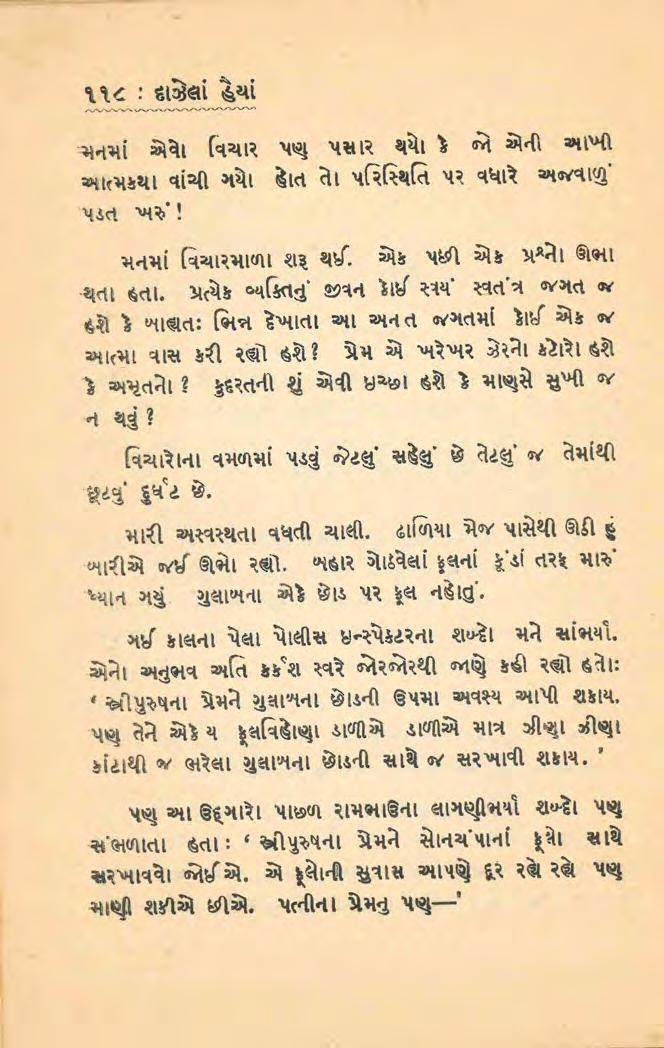 ૧૧૮ : દાઝેલાં હૈયાં
મનમાં એવો વિચાર પણ પસાર થયો કે જો એની આખી
આત્મકથા વાંચી ગયો હોત તો પરિસ્થિતિ પર વધારે અજવાળું
પડત ખરું !
મનમાં વિચારમાળા શરૂ થઈ. એક પછી એક પ્રશ્નો ઊભા
થતા હતા. પ્રત્યેક વ્યક્તિનું જીવન કોઈ સ્વયં સ્વતંત્ર જગત જ
હશે કે બાહ્યતઃ ભિન્ન દેખાતા આ અનત જગતમાં કોઈ એક જ
આત્મા વાસ કરી રહ્યો હશે? પ્રેમ એ ખરેખર ઝેરનો કટોરો હશે
કે અમૃતનો ? કુદરતની શું એવી ઇચ્છા હશે કે માણસે સુખી જ
ન થવું ?
વિચારોના વમળમાં પડવું જેટલું સહેલું છે તેટલું જ તેમાંથી
છૂટવું દુર્ઘટ છે.
મારી અસ્વસ્થતા વધતી ચાલી. ઢાળિયા મેજ પાસેથી ઊઠી હું
બારીએ જઈ ઊભો રહ્યો. બહાર ગોઠવેલાં ફૂલનાં કૂંડાં તરફ મારું
ધ્યાન ગયું ગુલાબના એકે છોડ પર ફૂલ નહોતું.
ગઈ કાલના પેલા પોલીસ ઇન્સ્પેક્ટરના શબ્દો મને સાંભર્યા.
એનો અનુભવ અતિ કર્કશ સ્વરે જોરજોરથી જાણે કહી રહ્યો હતો:
‘ સ્ત્રીપુરુષના પ્રેમને ગુલાબના છોડની ઉપમા અવશ્ય આપી શકાય.
પણ તેને એકે ય ફૂલવિહોણા ડાળીએ ડાળીએ માત્ર ઝીણા ઝીણા
કાંટાથી જ ભરેલા ગુલાબના છોડની સાથે જ સરખાવી શકાય. ’
પણ આ ઉદ્ગારો પાછળ રામભાઉના લાગણીભર્યા શબ્દો પણ
સંભળાતા હતા : ‘ સ્ત્રીપુરુષના પ્રેમને સોનચંપાનાં ફૂલો સાથે
સરખાવવો જોઈએ. એ ફૂલોની સુવાસ આપણે દૂર રહ્યે રહ્યે પણ
માણી શકીએ છીએ. પત્નીના પ્રેમનુ પણ—’